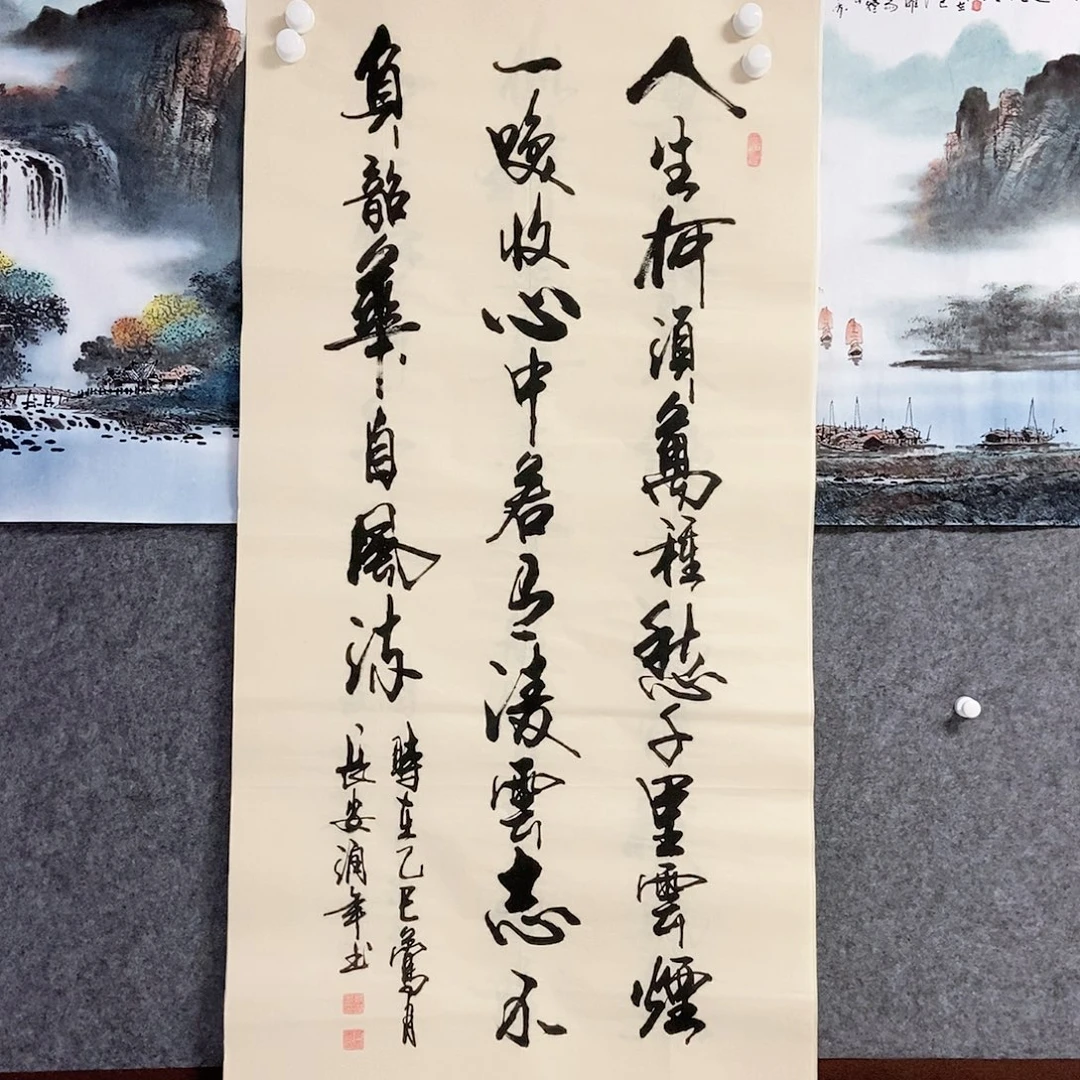 人生何須萬種愁千里雲煙
一喚收心中若有淩雲志不
負韶華自風流
時在乙巳鶯月
長安潤年书